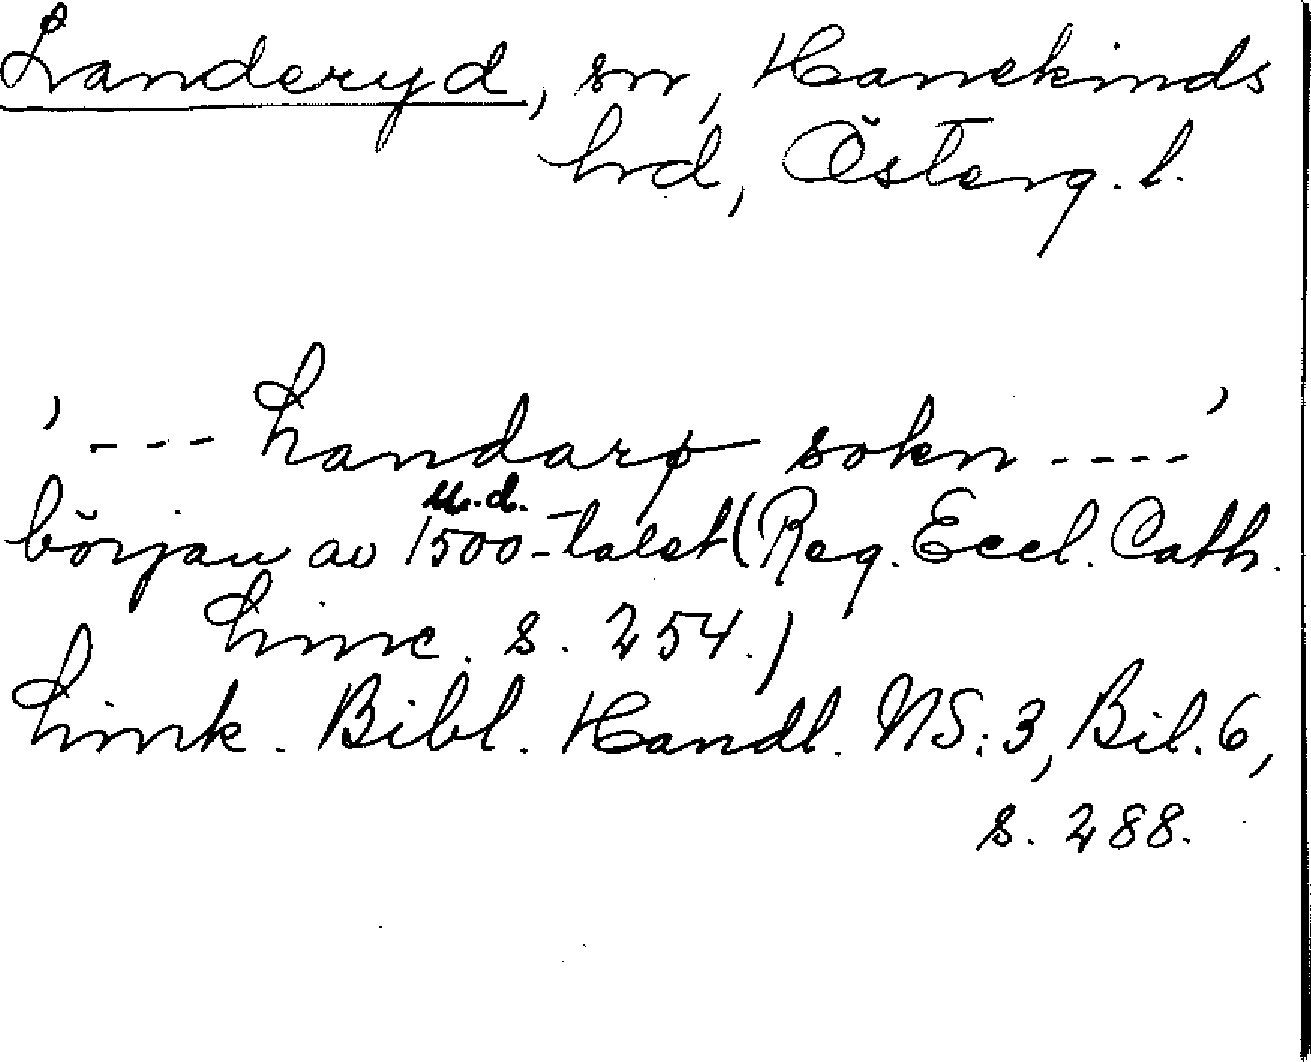 Landeryd, sn, Hanekinds
hd, Österg. l.
' --- Landarp sokn ---- '
u. d.
början av 1500-talet (Reg. Eccl. Cath.
Linc. s. 254.)
Link. Bibl. Handl. NS: 3, Bil. 6,
s. 288.